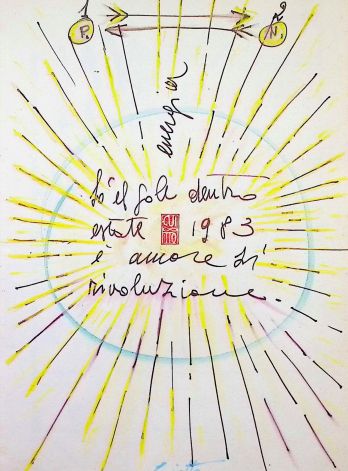 1 2
P. N.
energia
C'è il sole dentro
estate 1983
è amore di
rivoluzione.